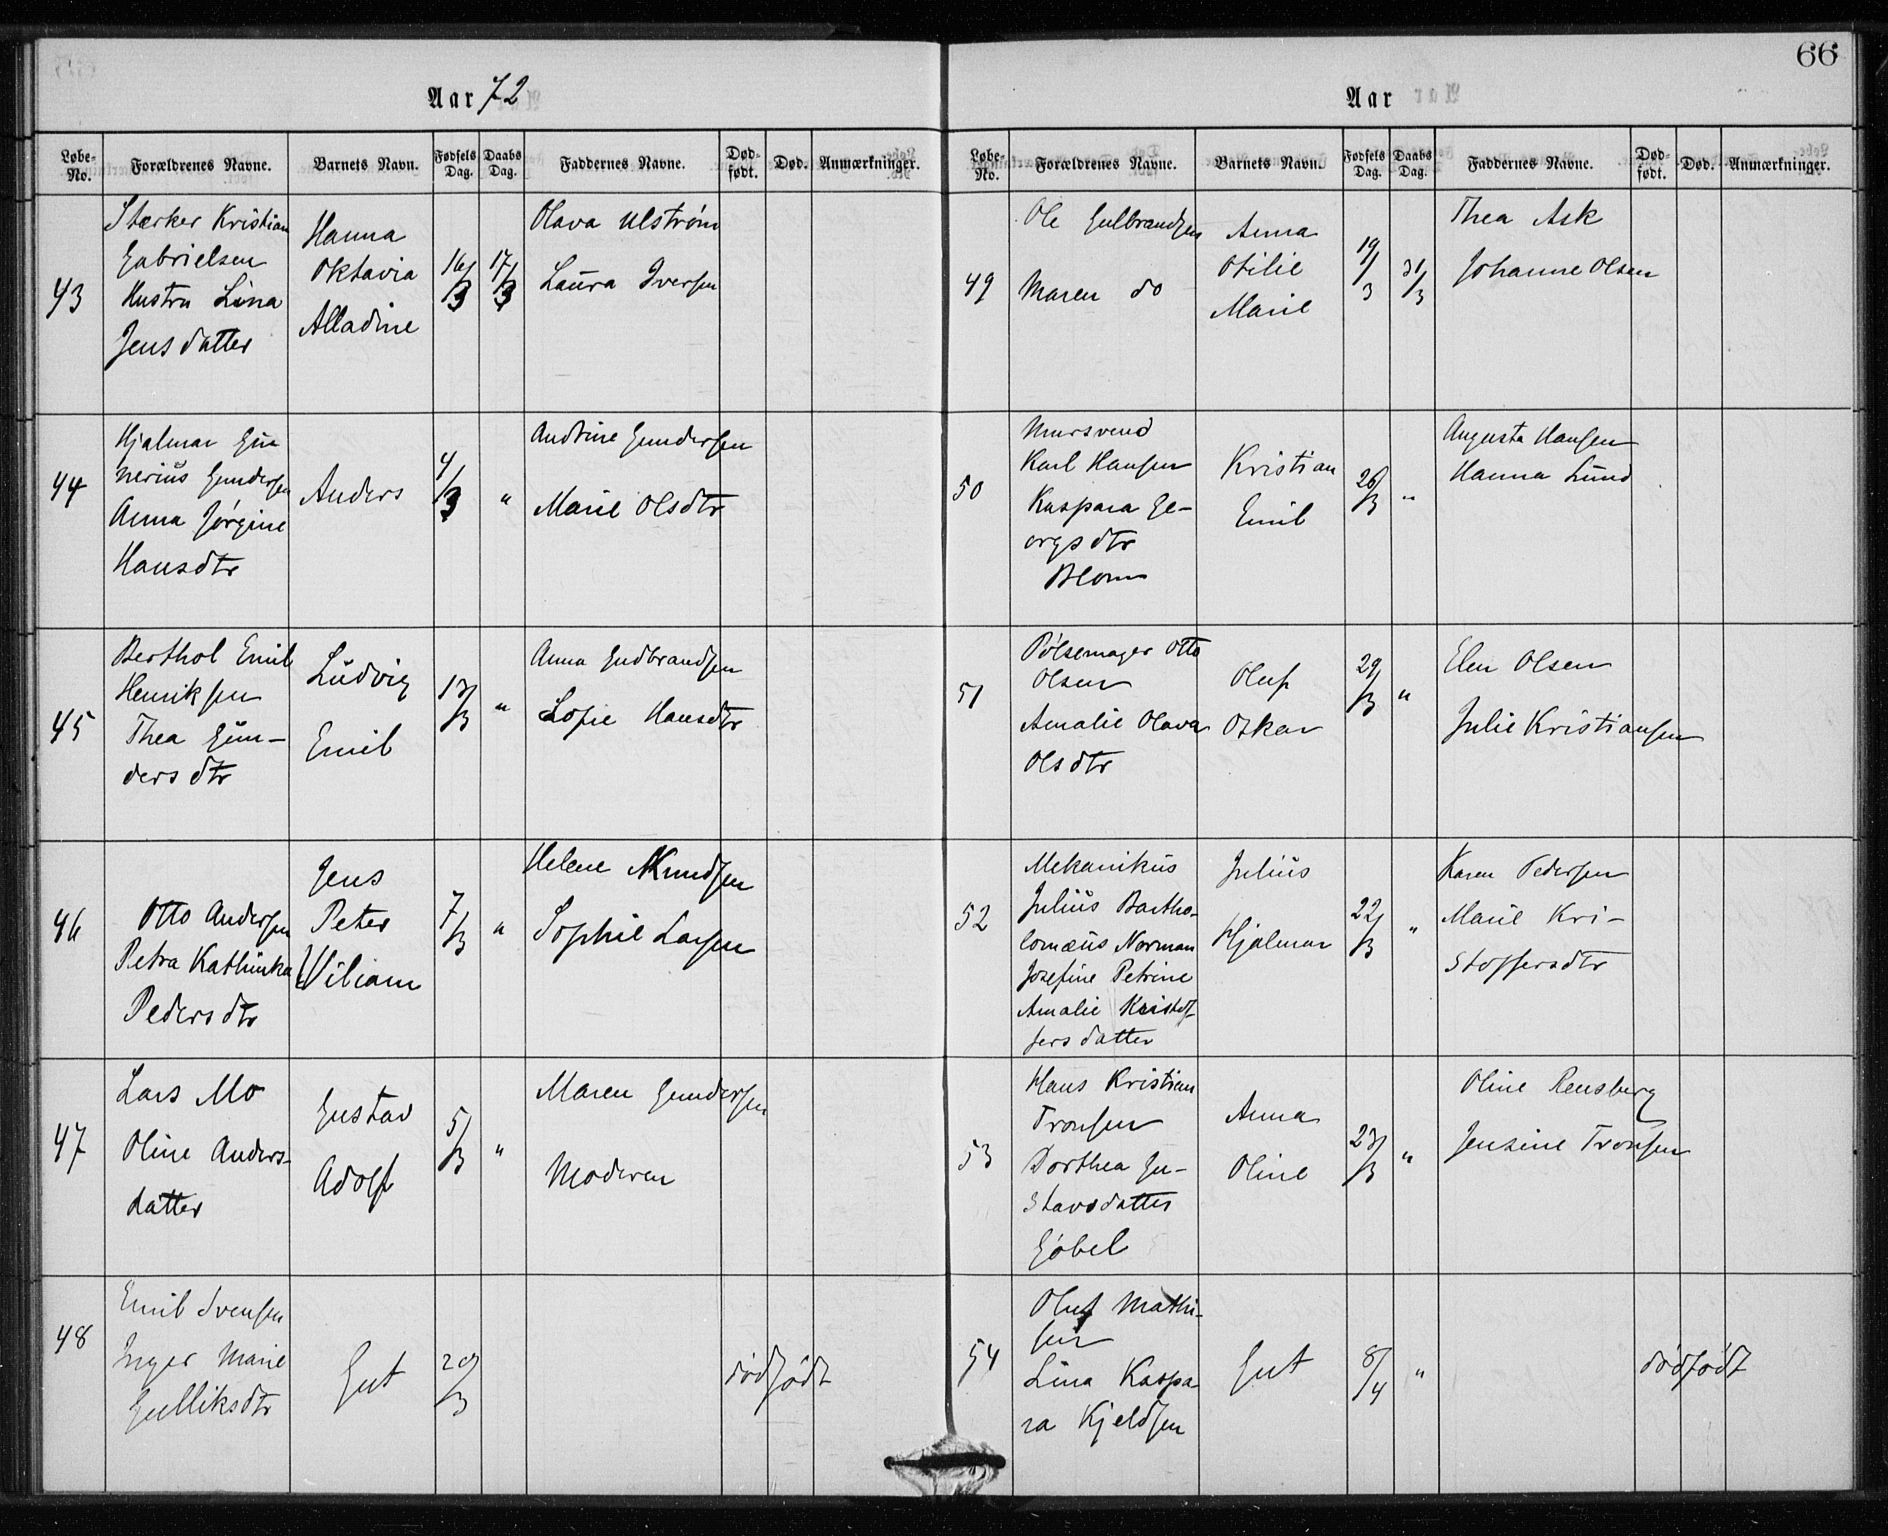 Aar 72
Løbe-No. Forældrenes Navne. Barnets Navn. Fødsels Dag. Daabs Dag. Faddernes Navne. Død-født. Død. Anmærkninger.
43
Stærker Kristian
Gabrielsen
Hustru Lina
Jensdatter
Hanna
Oktavia
Alladine
16/3
17/3
Olava Ulstrøm
Laura Iversen
44
Hjalmar Gun
nerius Gundersen
Anna Jørgine
Hansdtr
Anders
4/3
"
Andrine Gundersen
Marie Olsdtr
45
Berthol Emil
Henriksen
Thea Gun-
dersdtr
Ludvig
Emil
13/3
"
Anna Gudbrandsen
Sofie Hansdtr
46
Otto Andersen
Petra Kathinka
Pedersdtr
Jens
Peter
Viliam
7/3
"
Helene Knudsen
Sophie Larsen
47
Lars Mo
Oline Anders-
datter
Gustav
Adolf
5/3
"
Maren Gundersen
Moderen
48
Emil Svensen
Inger Marie
Gulliksdtr
Gut
20/3
dødfødt
66
Aar
Løbe-No. Forældrenes Navne. Barnets Navn. Fødsels Dag. Daabs Dag. Faddernes Navne. Død-født. Død. Anmærkninger.
49
Ole Gulbrandsen
Maren do
Anna
Otilie
Marie
19/3
31/3
Thea Ask
Johanne Olsen
50
Mursvend
Karl Hansen
Kaspara Ge-
orgsdtr
Blom
Kristian
Emil
26/3
"
Augusta Hansen
Hanna Lund
51
Pølsemager Otto
Olsen
Amalie Olava
Olsdtr
Oluf
Oskar
29/3
"
Elen Olsen
Julie Kristiansen
52
Mekanikus
Julius Bartho-
lomæus Norman
Josefine Petrine
Amalie Kristof-
fersdatter
Julius
Hjalmar
22/3
"
Karen Pedersen
Marie Kri-
stoffersdtr
53
Hans Kristian
Tronsen
Dorthea Gu-
stavsdatter
Gøbel
Anna
Oline
23/3
"
Oline Rensberg
Jensine Tronsen
54
Oluf Mathi-
sen
Lina Kaspa-
ra Kjeldsen
Gut
8/4
"
dødfødt